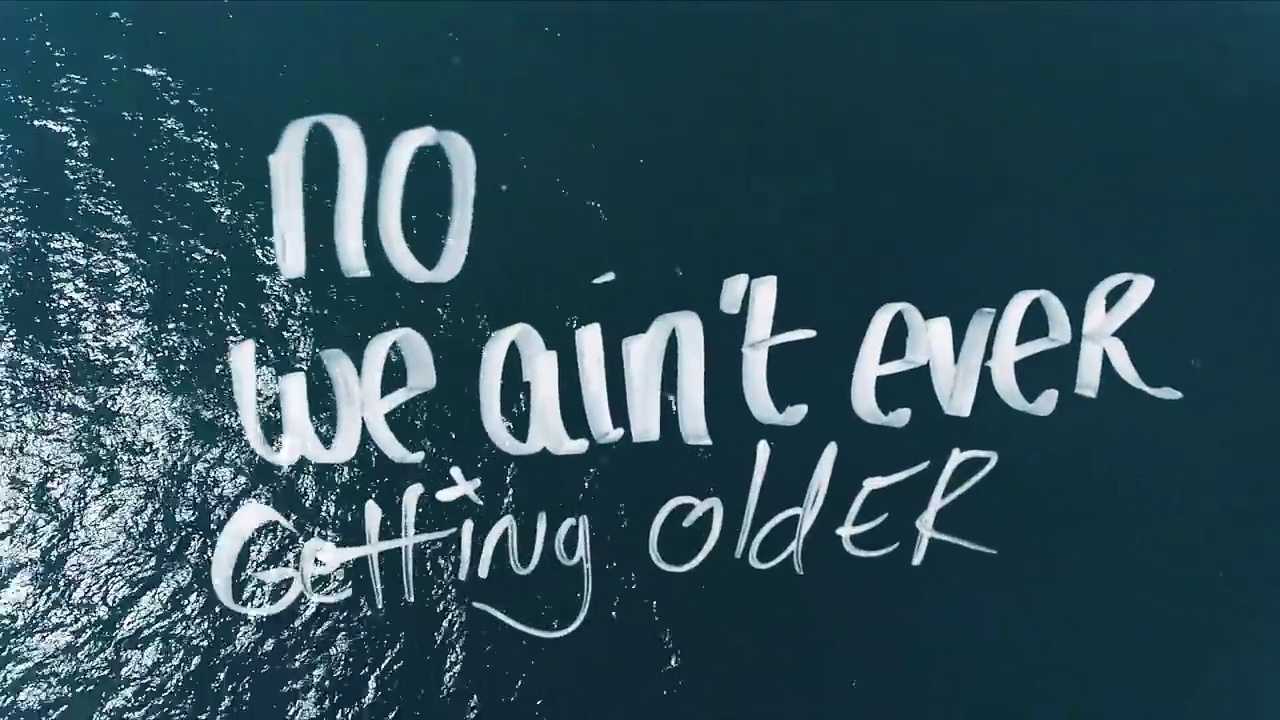 no
we ain't ever
Getting oldER